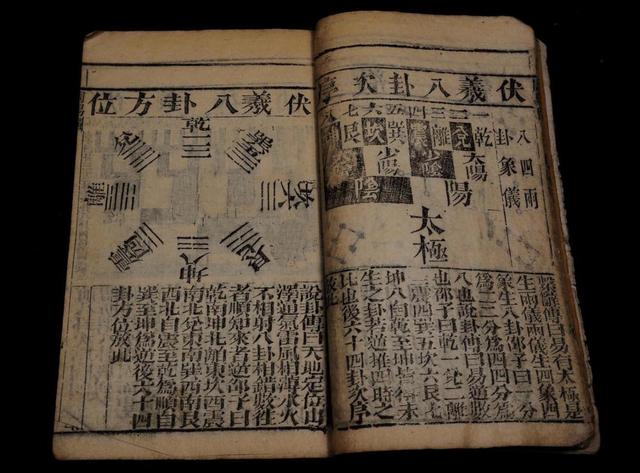 伏羲八卦次
八卦
四象
兩儀
一二三四五六七八
乾兌離震巽坎艮
太陽
少陰
少陽
陽
陰
太極
繫辭傳曰易有太極是
生兩儀兩儀生四象四
象生八卦邵子曰一分
爲二二分爲四四分爲
八也說卦傳曰易逆數
也邵子曰乾一兌二離
三震四巽五坎六艮七
坤八自乾至坤皆得未
生之卦若逆推四時之
比也後六十四卦次序
放此
伏羲八卦方位
乾一
巽五
坎六
艮七
坤八
震四
離三
兌二
說卦傳曰天地定位山
澤通氣雷風相薄水火
不相射八卦相錯數往
者順知來者逆邵子曰
乾南坤北離東坎西震
東北兌東南巽西南艮
西北自震至乾爲順自
巽至坤爲逆後六十四
卦方位放此